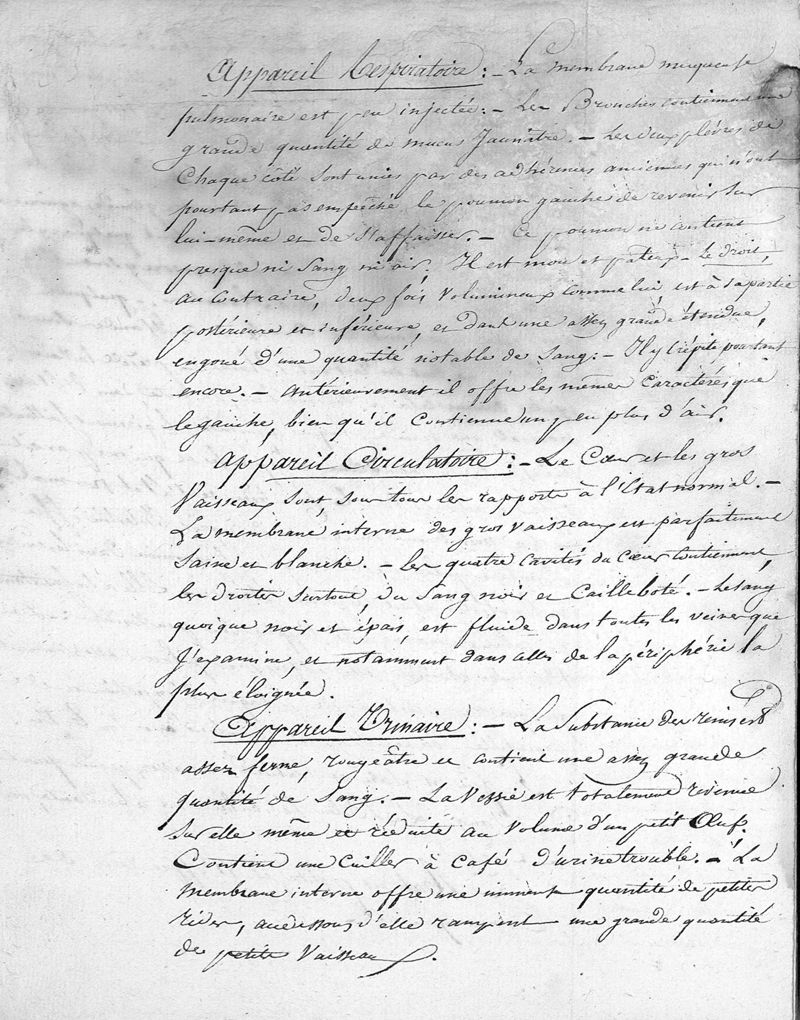 Appareil Respiratoire : – La membrane muqueuse
pulmonaire est peu injectée : – Les Bronches contiennent une
grande quantité de mucus Jaunâtre. – Les deux plèvres de
Chaque côté sont unies par des adhérences anciennes qui n'ont
pourtant pas empêché le poumon gauche de revenir sur
lui-même et de s'affaisser. – Ce poumon ne contient
presque ni Sang ni air. Il est mou et pâteux – Le droit,
au Contraire, deux fois volumineux comme lui, est à sa partie
postérieure et inférieure, et dans une assez grande étendue,
engoué d'une quantité notable de Sang : – Il y Crépite pourtant
encore. – antérieurement il offre les mêmes Caractères que
le gauche, bien qu'il Contienne un peu plus d'air.
Appareil Circulatoire : – Le Cœur et les gros
Vaisseaux sont sous tous les rapports à l'Etat normal. –
La membrane interne des gros vaisseaux est parfaitement
saine et blanche. – Les quatre cavités du Cœur Contiennent,
les droites surtout, du Sang noir et Cailleboté. – Le sang
quoique noir et épais, est fluide dans toutes les veines que
J'examine, et notamment dans celles de la périphérie la
plus éloignée.
Appareil Urinaire : – La Substance des reins est
assez ferme, rougeâtre et contient une assez grande
quantité de Sang. – La Vessie est totalement revenue
sur elle même et réduite au volume d'un petit Œuf.
Contient une Cuiller à Café d'urine trouble. – La
membrane interne offre une immense quantité de petites
rides, audessous d'elle rampent une grande quantité
de petits Vaisseaux.